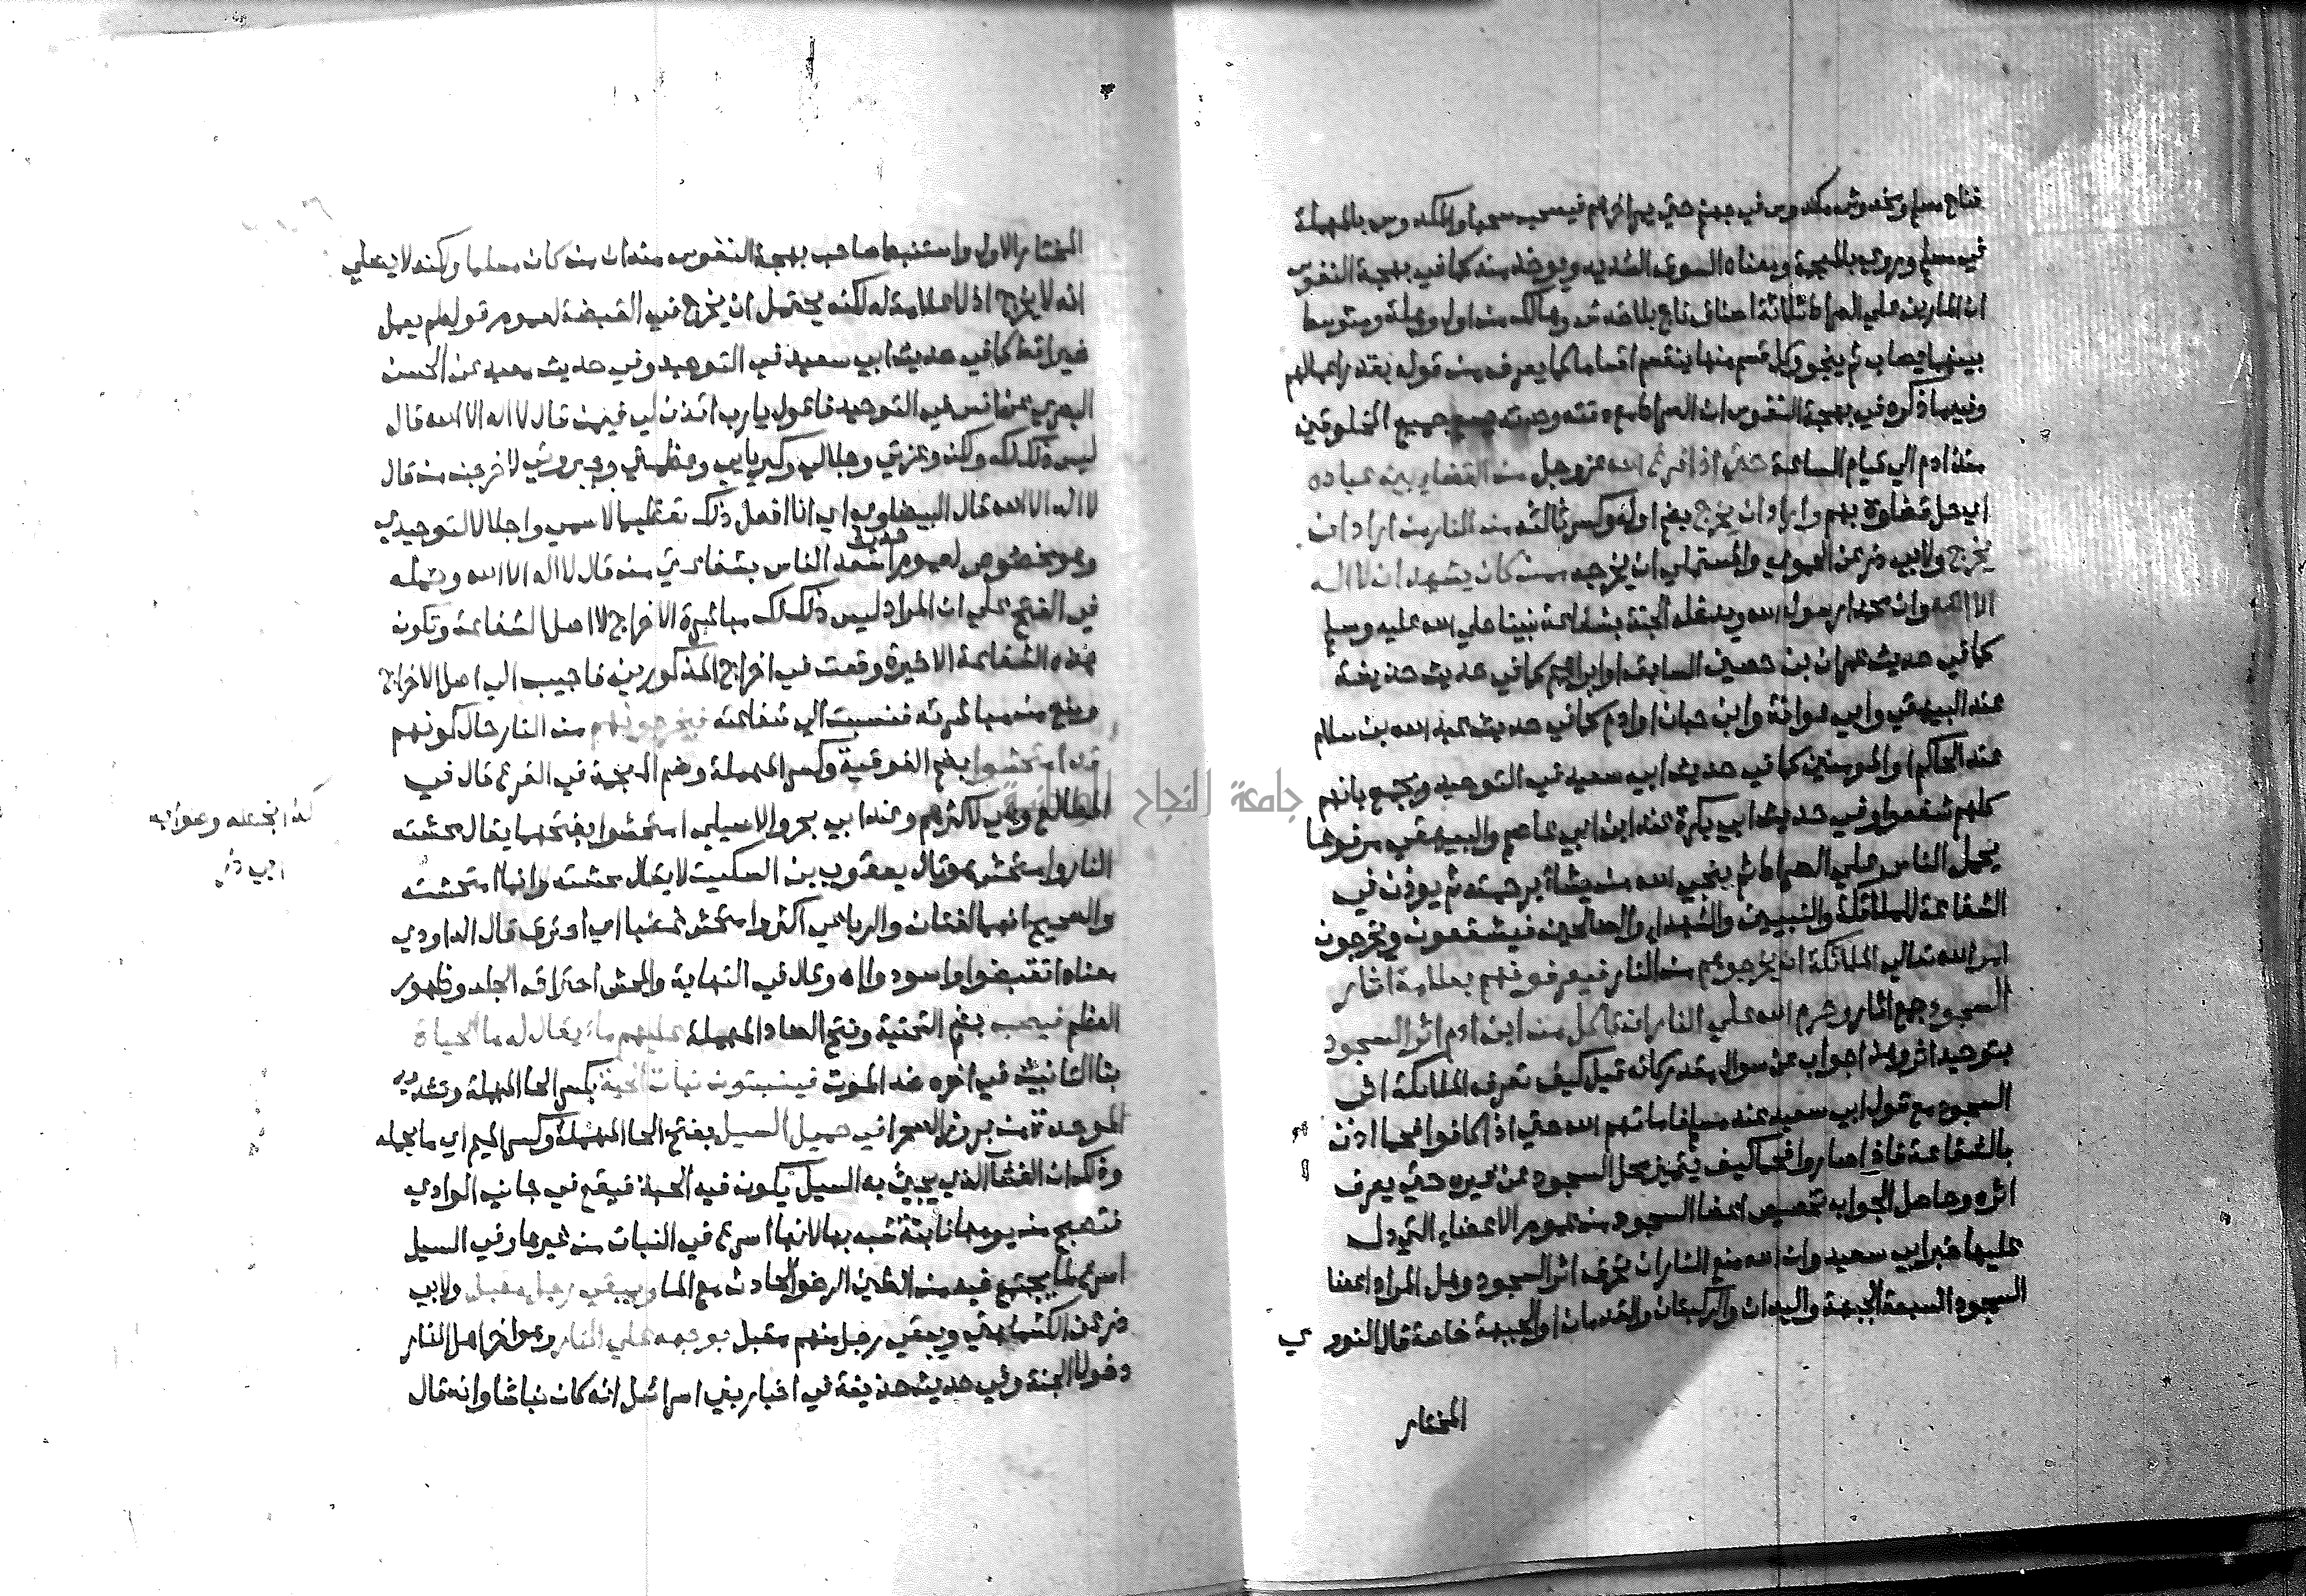 فناج مسلم ومخدوش مكدوس في جهنم حتي يمر اخرهم فيسحب سحبا والمكدوس بالمهملة
في مسلم وروي بالمعجمة ومعناه السوق الشديد ويوخذ منه كما في بهجة النفوس
ان المارين علي الصراط ثلاثة اصناف ناج بلا خدش وهالك من اول وهلة ومتوسط
بينهما يصاب ثم ينجو وكل قسم منها ينقسم اقساما كما يعرف من قوله بقدر اعمالهم
وفيما ذكره في بهجة النفوس ان الصراط مع دقته وحدته يسع جميع المخلوقين
منذ ادم الي قيام الساعة حتي اذا فرغ الله عز وجل من القضاء بين عباده
اي حل قضاوه بهم واراد ان يخرج بضم اوله وكسر ثالثه من النار من اراد ان
يخرج ولابي ذر عن الحموي والمستملي ان يخرجه ممن كان يشهد ان لا اله
الا الله وان محمدا رسول الله ويدخله الجنة بشفاعة نبينا صلي الله عليه وسلم
كما في حديث عمران بن حصين السابق او ابراهيم كما في حديث حذيفة
عند البيهقي وابي عوانة وابن حبان او ادم كما في حديث عبد الله بن سلام
عند الحاكم او المومنين كما في حديث ابي سعيد في التوحيد ويجمع بانهم
كلهم شفعوا وفي حديث ابي بكرة عند ابن ابي عاصم والبيهقي مرفوعا
يحمل الناس علي الصراط ثم ينجي الله من يشاء برحمته ثم يوذن في
الشفاعة للملائكة والنبيين والشهداء والصالحين فيشفعون ويخرجون
امر الله تعالي الملائكة ان يخرجوهم من النار فيعرفونهم بعلامة اثار
السجود جمع اثار وحرم الله علي النار ان تاكل من ابن ادم اثر السجود
بتوحيد اثر وهذا جواب عن سوال مقدر كانه قيل كيف تعرف الملائكة اثر
السجود مع قول ابي سعيد عند مسلم فاماتهم الله حتي اذا كانوا فحما اذن
بالشفاعة فاذا صاروا فحما كيف يتميز محل السجود عن غيره حتي يعرف
اثره وحاصل الجواب تخصيص اعضا السجود من عموم الاعضاء التي دل
عليها خبر ابي سعيد وان الله منع النار ان تحرق اثر السجود وهل المراد اعضا
السجود السبعة الجبهة واليدان والركبتان والقدمان او الجبهة خاصة قال النووي
المختار
المختار الاول واستنبط صاحب بهجة النفوس منه ان من كان مسلما ولكنه لا يصلي
انه لا يخرج اذ لا علامة له لكنه يحتمل ان يخرج في القبضة لعموم قوله لم يعمل
خيرا قط كما في حديث ابي سعيد في التوحيد وفي حديث معبد عن الحسن
البصري عن انس في التوحيد فاقول يا رب ائذن لي فيمن قال لا اله الا الله قال
ليس ذلك لك ولكن وعزتي وجلالي وكبريايي وعظمتي وجبروتي لاخرجن من قال
لا اله الا الله قال البيضاوي اي انا افعل ذلك تعظيما لاسمي واجلالا لتوحيدي
وهو مخصوص لعموم حديث اسعد الناس بشفاعتي من قال لا اله الا الله وحمله
في الفتح علي ان المراد ليس ذلك لك مباشرة الاخراج لا اصل الشفاعة وتكون
هذه الشفاعة الاخيرة وقعت في اخراج المذكورين فاجيب الي اصل الاخراج
ومنع من مباشرته فنسبت الي شفاعته فيخرجونهم من النار حال كونهم
قد امتحشوا بضم الفوقية وكسر المهملة وضم المعجمة في الفرع قال في
المطالع وهي لاكثرهم وعند ابي بحر والاصيلي امتحشوا بفتحهما يقال محشته
النار وامتحش هو وقال يعقوب بن السكيت لا يقال محشته وانما امتحشته
والصحيح انهما لغتان والرباعي اكثر وامتحش غضبا اي احترق قال الداودي
معناه انقبضوا واسودوا اه وقال في النهاية والمحش احتراق الجلد وظهور
العظم فيصب بضم التحتية وفتح الصاد المهملة عليهم ماء يقال له ما الحياة
بتا التانيث في اخره ضد الموت فينبتون نبات الحبة بكسر الحا المهملة وتشديد
الموحدة من بزر الصحرا في حميل السيل بفتح الحا المهملة وكسر الميم اي ما يحمله
وذلك ان الغثا الذي يجيي به السيل يكون فيه الحبة فيقع في جانب الوادي
فتصبح من يومها نابتة شبه بها لانها اسرع في النبات من غيرها وفي السيل
اسرع لما يجتمع فيه من الطين الرخو الحادث مع الما ويبقي رجل مقبل ولابي
ذر عن الكشميهني ويبقي رجل منهم مقبل بوجهه علي النار وهو اخر اهل النار
دخولا الجنة وفي حديث حذيفة في اخبار بني اسرائيل انه كان نباشا وانه قال
كذا بخطه وعزاه
ابي ذر
جامعة النجاح